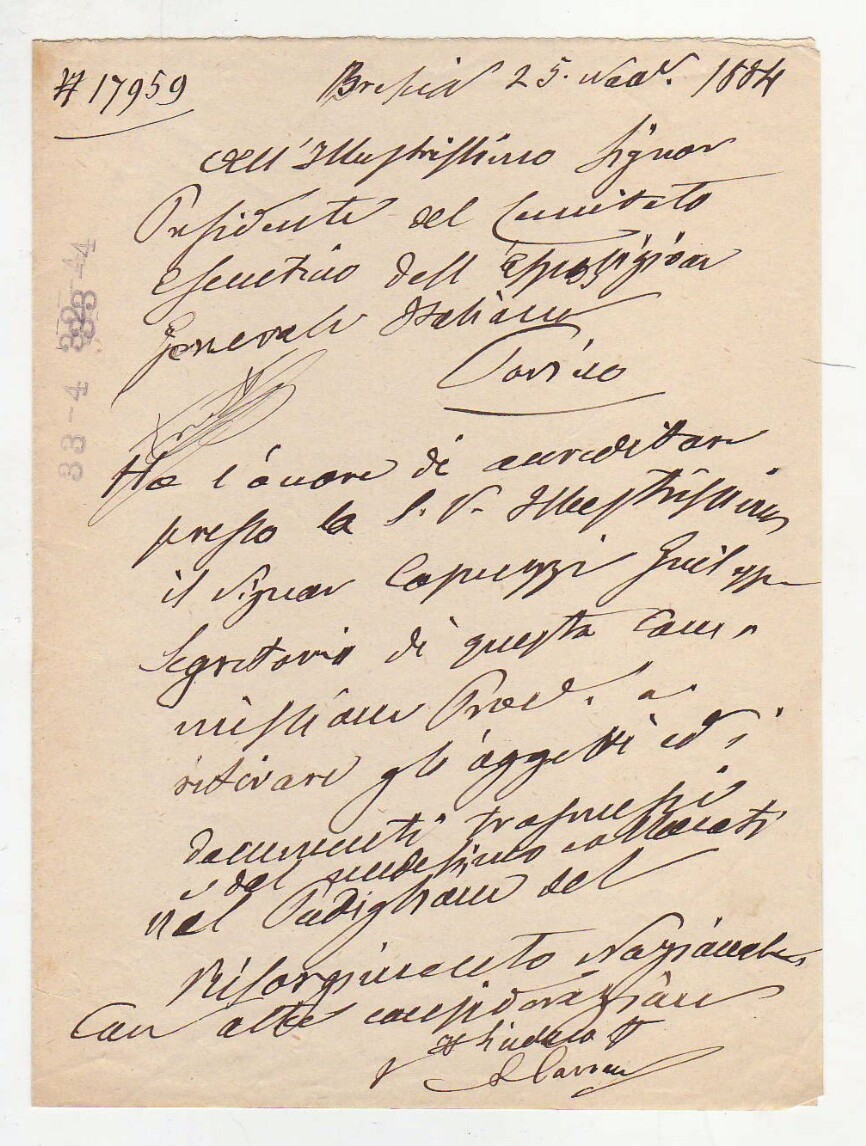 # 17959
Brescia 25. Nov. 1884
All'Illustrissimo Signor
Presidente del Comitato
Esecutivo dell'Esposizione
Generale Italiana
Torino
33-4 333-44
Ho l'onore di accreditare
presso la S. V. Illustrissima
il Signor Capuzzi Giuseppe
Segretario di questa Com-
missione Prov. a
ritirare gli oggetti ed i
documenti trasmessi
dal medesimo collocati
nel Padiglione del
Risorgimento Nazionale
Con alta considerazione
Il Sindaco